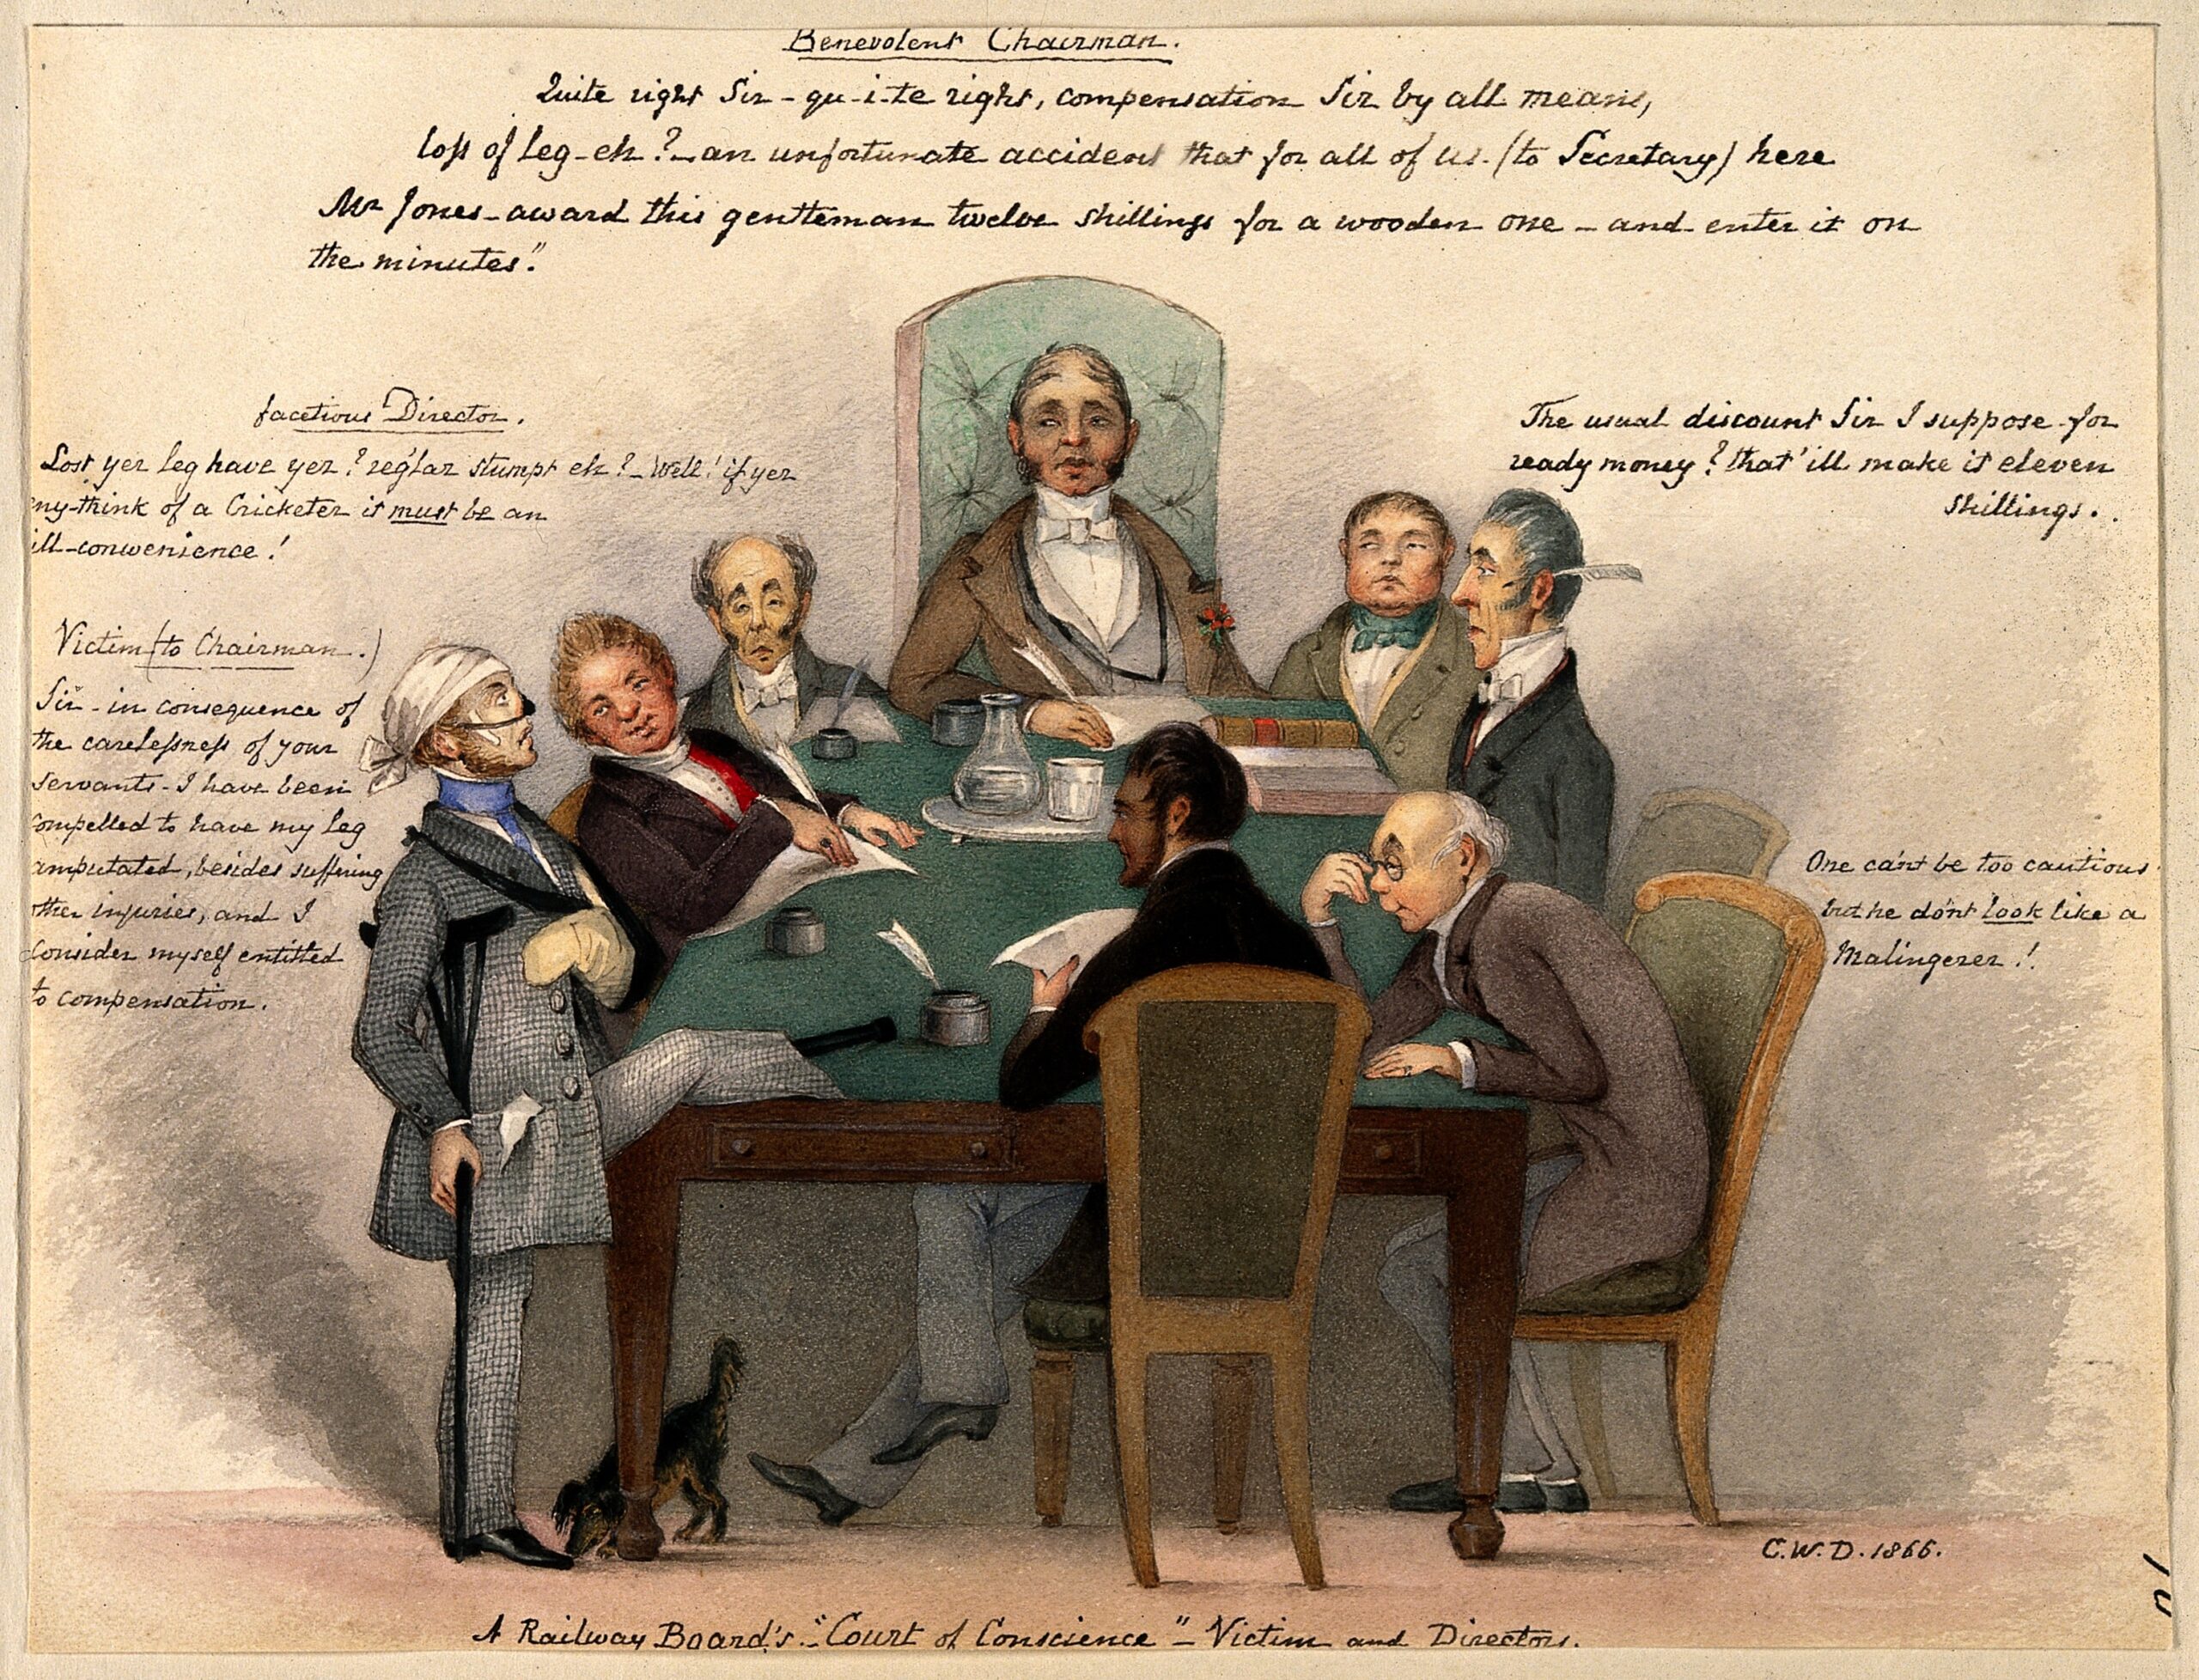 Benevolent Chairman.
Quite right Sir - qu-i-te right, compensation Sir by all means,
loss of leg - eh? - an unfortunate accident that for all of us. (to Secretary) here
Mr Jones - award this gentleman twelve shillings for a wooden one - and enter it on
the minutes."
facetious Director.
Lost yer leg have yer? reg'lar stumpt eh? - Well! if yer
ny-think of a Cricketer it must be an
ill-conwenience!
The usual discount Sir I suppose for
ready money? that'ill make it eleven
shillings.
Victim (to Chairman.)
Sir - in consequence of
the carelessness of your
servants - I have been
compelled to have my leg
amputated, besides suffering
other injuries, and I
consider myself entitled
to compensation.
One can't be too cautious
but he do'nt look like a
Malingerer!
C.W.D. 1866.
10
A Railway Board's "Court of Conscience" - Victim and Directors.